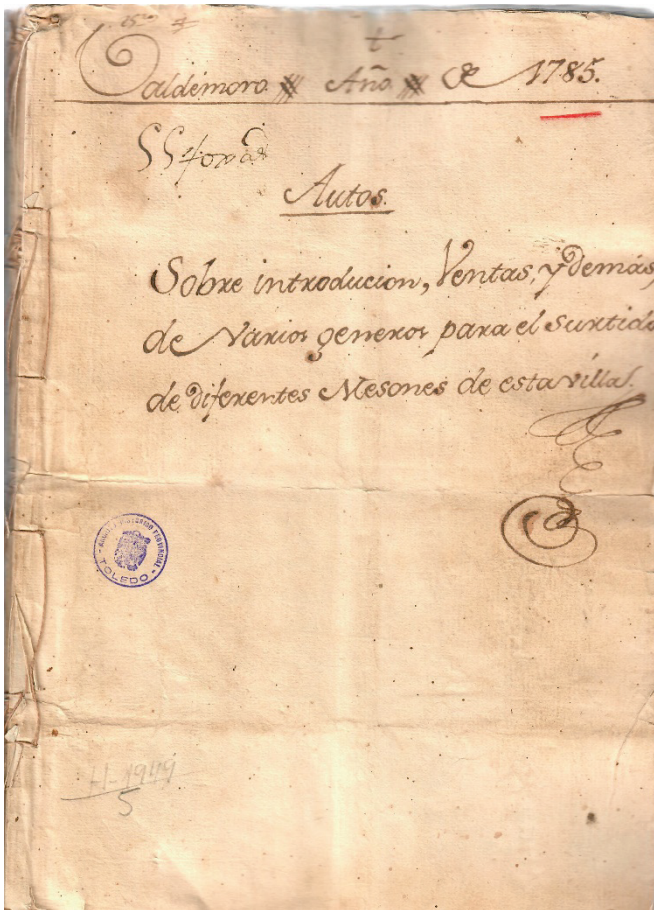 15º
Valdemoro Año de 1785.
Autos.
Sobre introducion, Ventas, y demás,
de Varios generos para el surtido
de diferentes Mesones de esta villa.
TOLEDO
H-1944
5